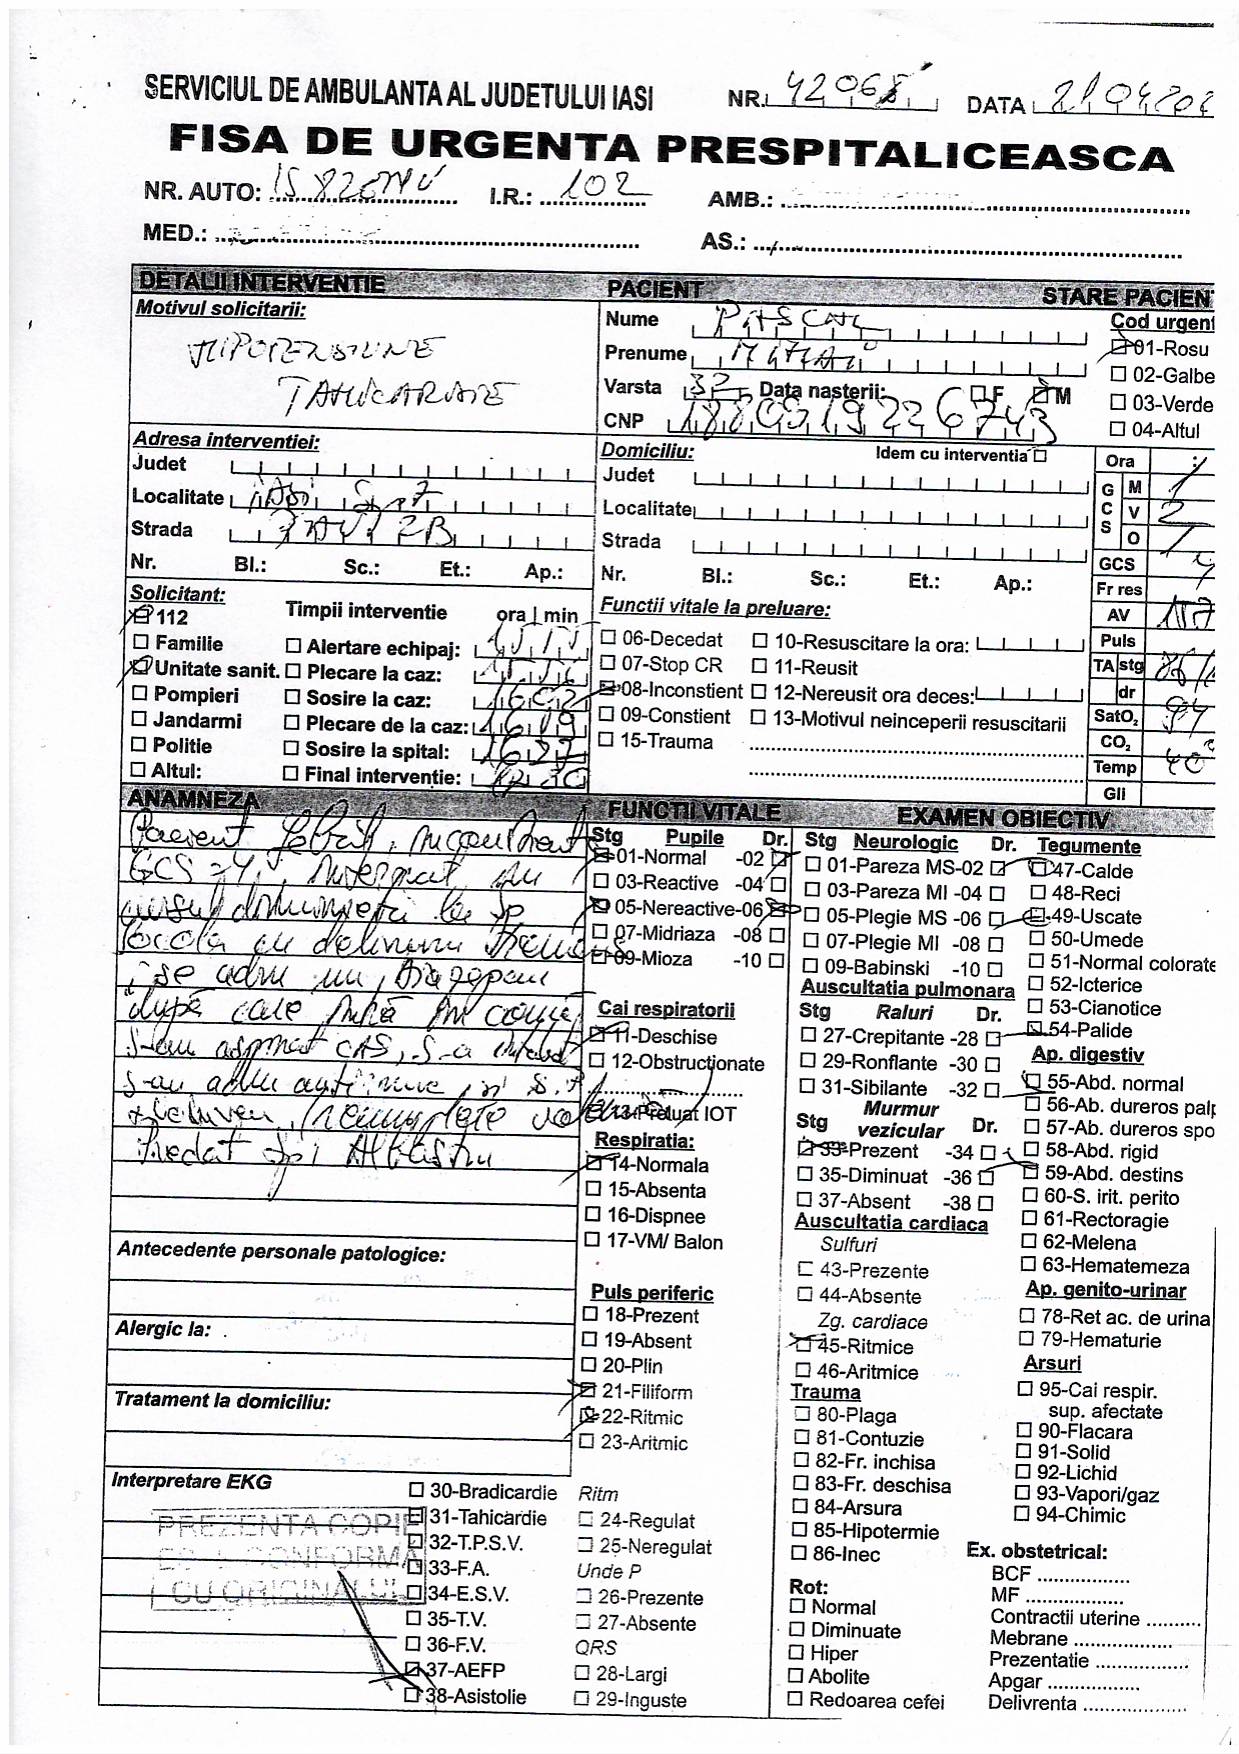 SERVICIUL DE AMBULANTA AL JUDETULUI IASI NR. 42068 DATA 21 04 202
FISA DE URGENTA PRESPITALICEASCA
NR. AUTO: IS 82 I.R.: 102 AMB.:
MED.: AS.:
DETALII INTERVENTIE PACIENT STARE PACIENT
Motivul solicitarii:
HIPOTENSIUNE
TAHICARDIE
Nume PASCAL
Prenume MIHAI
Varsta 32 Data nasterii: F M
CNP 1880519226743
Cod urgent
01-Rosu
02-Galbe
03-Verde
04-Altul
Adresa interventiei:
Judet
Localitate IASI
Strada
Nr. Bl.: Sc.: Et.: Ap.:
Domiciliu: Idem cu interventia
Judet
Localitate
Strada
Nr. Bl.: Sc.: Et.: Ap.:
Ora
GCS M 1
V 2
O 1
GCS 4
Fr res
AV 117
Puls
TA stg 85/
dr
SatO2 94
CO2
Temp 40
Gli
Solicitant: Timpii interventie ora min
112
Familie Alertare echipaj:
Unitate sanit. Plecare la caz:
Pompieri Sosire la caz: 16 02
Jandarmi Plecare de la caz: 16 19
Politie Sosire la spital: 16 27
Altul: Final interventie:
Functii vitale la preluare:
06-Decedat 10-Resuscitare la ora:
07-Stop CR 11-Reusit
08-Inconstient 12-Nereusit ora deces:
09-Constient 13-Motivul neinceperii resuscitarii
15-Trauma
ANAMNEZA FUNCTII VITALE EXAMEN OBIECTIV
Pacient febril, inconstient
GCS = 4, internat in
cursul diminetii la Sp
Socola cu delirium tremens
, se adm un, Diazepam
după care intră în comă,
s-au aspirat CAS, s-a intubat
s-au adm
Predat
Antecedente personale patologice:
Alergic la:
Tratament la domiciliu:
Interpretare EKG
PREZENTA COPIE
CONFORMA
CU ORIGINALUL
30-Bradicardie
31-Tahicardie
32-T.P.S.V.
33-F.A.
34-E.S.V.
35-T.V.
36-F.V.
37-AEFP
38-Asistolie
Ritm
24-Regulat
25-Neregulat
Unde P
26-Prezente
27-Absente
QRS
28-Largi
29-Inguste
Stg Pupile Dr.
01-Normal -02
03-Reactive -04
05-Nereactive-06
07-Midriaza -08
09-Mioza -10
Cai respiratorii
11-Deschise
12-Obstructionate
13-Preluat IOT
Respiratia:
14-Normala
15-Absenta
16-Dispnee
17-VM/ Balon
Puls periferic
18-Prezent
19-Absent
20-Plin
21-Filiform
22-Ritmic
23-Aritmic
Stg Neurologic Dr.
01-Pareza MS-02
03-Pareza MI -04
05-Plegie MS -06
07-Plegie MI -08
09-Babinski -10
Auscultatia pulmonara
Stg Raluri Dr.
27-Crepitante -28
29-Ronflante -30
31-Sibilante -32
Stg Murmur vezicular Dr.
33-Prezent -34
35-Diminuat -36
37-Absent -38
Auscultatia cardiaca
Sulfuri
43-Prezente
44-Absente
Zg. cardiace
45-Ritmice
46-Aritmice
Trauma
80-Plaga
81-Contuzie
82-Fr. inchisa
83-Fr. deschisa
84-Arsura
85-Hipotermie
86-Inec
Rot:
Normal
Diminuate
Hiper
Abolite
Redoarea cefei
Tegumente
47-Calde
48-Reci
49-Uscate
50-Umede
51-Normal colorate
52-Icterice
53-Cianotice
54-Palide
Ap. digestiv
55-Abd. normal
56-Ab. dureros palp
57-Ab. dureros spo
58-Abd. rigid
59-Abd. destins
60-S. irit. perito
61-Rectoragie
62-Melena
63-Hematemeza
Ap. genito-urinar
78-Ret ac. de urina
79-Hematurie
Arsuri
95-Cai respir.
sup. afectate
90-Flacara
91-Solid
92-Lichid
93-Vapori/gaz
94-Chimic
Ex. obstetrical:
BCF
MF
Contractii uterine
Mebrane
Prezentatie
Apgar
Delivrenta